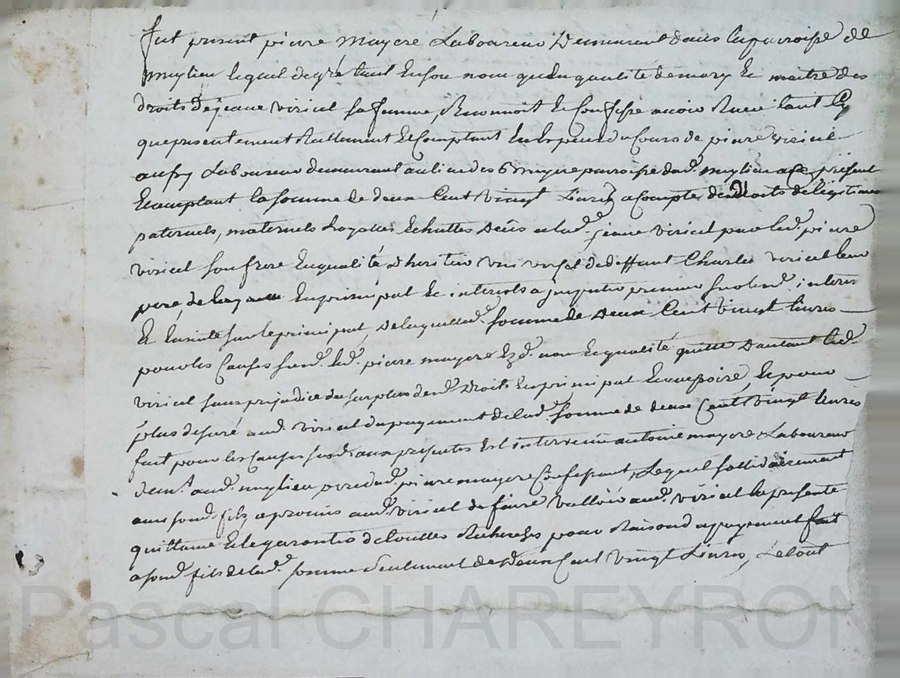 fut present pierre mayere Laboureur Demeurant dans la parroisse de
muylieu lequel de gré tant En son nom qu'En qualité de mary Et maitre des
droits de jeane viricel sa femme, Reconnoit Et Confesse avoir Receu tant Cy
que presentement Rellement Et Comptant En Especes du Cours de pierre viricel
aussy Laboureur demeurant au lieu des parroisse dud. muylieu a Ce present
Et aceptant la somme de deux Cent vingt Livres a Compte des droits de legitime
paternels, maternels Et Echuttes deus a lad. jeane viricel par led. pierre
viricel son frere En qualité d'heritier universel de deffunt Charles viricel leur
pere de laquelle En principal Et interets a jmputer premier sur interets
Et Ensuite sur le principal, De laquelle d. somme de Deux Cent vingt livres
pour les Causes susd. led. pierre mayere Ezd. nom Et qualité quitte D'autant led.
viricel sans prejudice du surplus desd. Droits En principal Et accessoire, Et pour
plus de sureté aud. viricel du payement de lad. somme de deux Cent vingt livres
fait pour les Causes susd. aux presentes Est intervenu antoine mayere Laboureur
dem.t aud. muylieu pere dud. pierre mayere Confessant, Lequel sollidairement
avec sond. fils a promis aud. viricel de faire valloir aud. viricel la presente
quittance Et le garantir de touttes Recherches pour Raison du payement fait
a sond. fils de lad. somme seulement de Deux Cent vingt Livres, Le tout
Pascal CHAREYRON